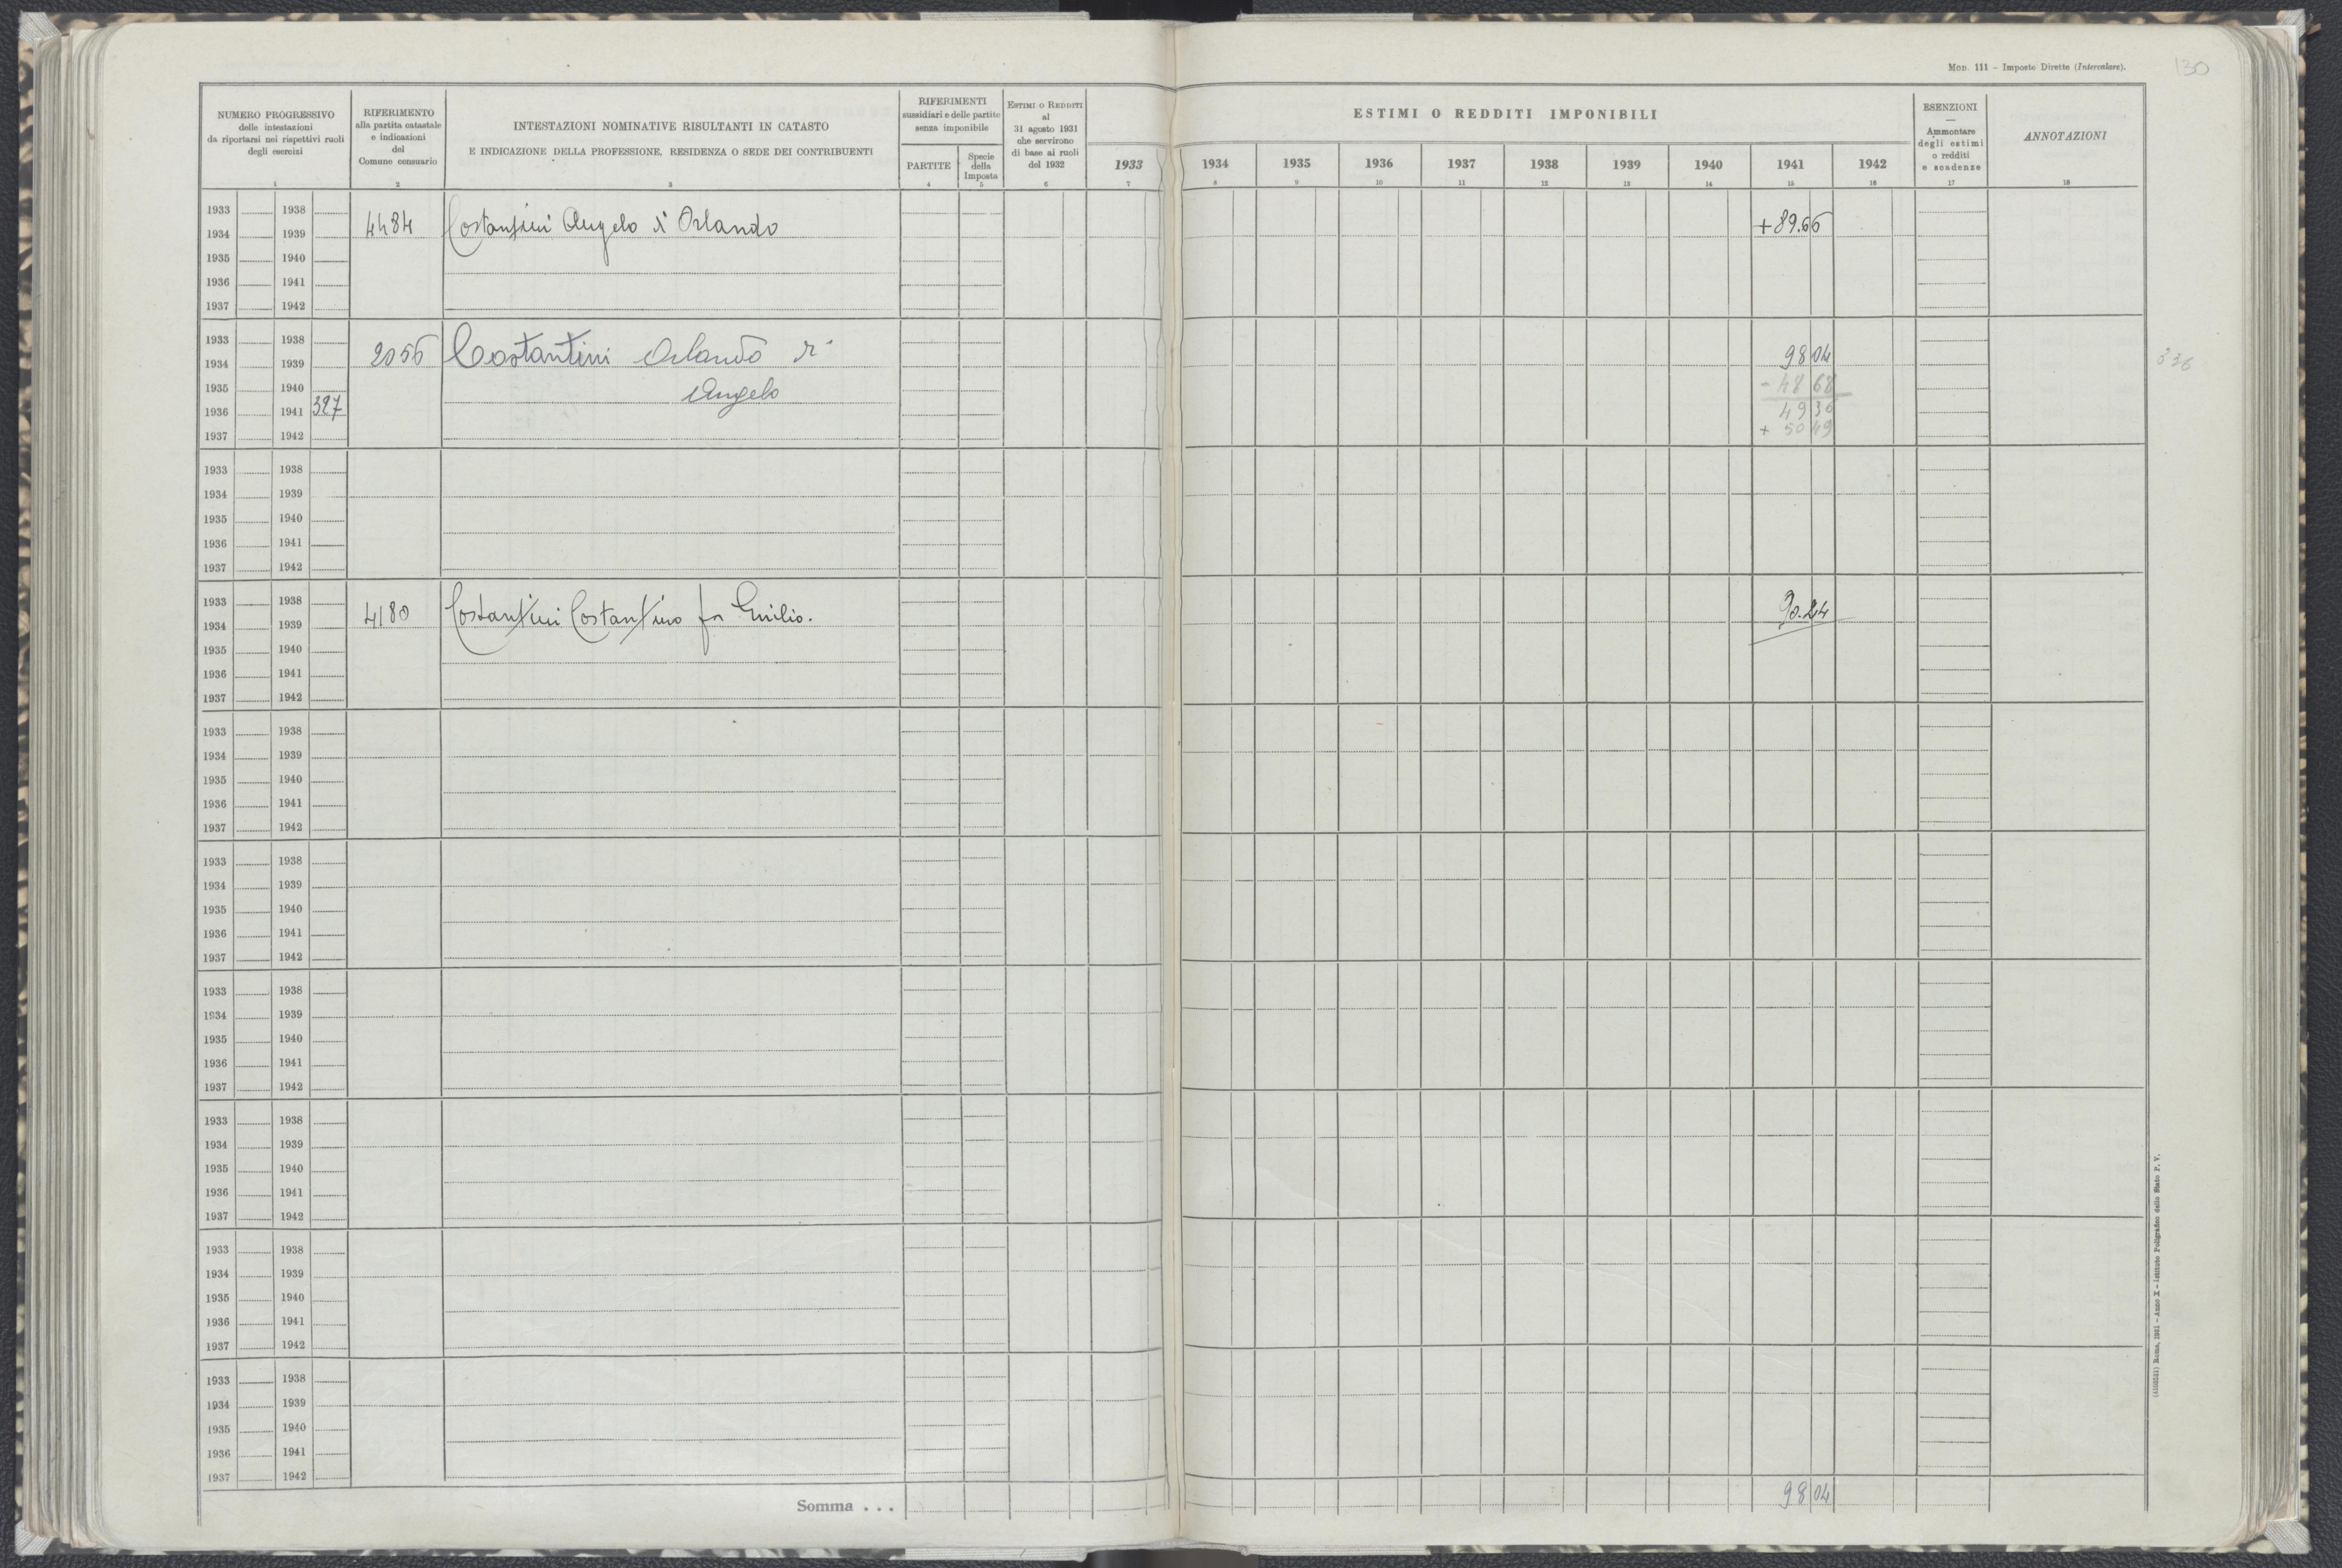 Mod. 111 - Imposte Dirette (Intercalare).
130
NUMERO PROGRESSIVO
delle intestazioni
da riportarsi nei rispettivi ruoli
degli esercizi
1
RIFERIMENTO
alla partita catastale
e indicazioni
del
Comune censuario
2
INTESTAZIONI NOMINATIVE RISULTANTI IN CATASTO
E INDICAZIONE DELLA PROFESSIONE, RESIDENZA O SEDE DEI CONTRIBUENTI
3
RIFERIMENTI
sussidiari e delle partite
senza imponibile
PARTITE
4
Specie
della
Imposta
5
Estimi o Redditi
al
31 agosto 1931
che servirono
di base ai ruoli
del 1932
6
ESTIMI O REDDITI IMPONIBILI
1933 1934 1935 1936 1937 1938 1939 1940 1941 1942
7 8 9 10 11 12 13 14 15 16
ESENZIONI
—
Ammontare
degli estimi
o redditi
e scadenze
17
ANNOTAZIONI
18
1933 1938
4484 Costantini Angelo di Orlando +89.66
1934 1939
1935 1940
1936 1941
1937 1942
1933 1938
2056 Costantini Orlando di 98 04
1934 1939
336
1935 1940
Angelo - 48 68
1936 1941 327
49 36
1937 1942
+ 50 49
1933 1938
1934 1939
1935 1940
1936 1941
1937 1942
1933 1938
4180 Costantini Costantino fu Emilio. 90.24
1934 1939
1935 1940
1936 1941
1937 1942
1933 1938
1934 1939
1935 1940
1936 1941
1937 1942
1933 1938
1934 1939
1935 1940
1936 1941
1937 1942
1933 1938
1934 1939
1935 1940
1936 1941
1937 1942
1933 1938
1934 1939
1935 1940
1936 1941
1937 1942
1933 1938
1934 1939
1935 1940
1936 1941
1937 1942
1933 1938
1934 1939
1935 1940
1936 1941
1937 1942
Somma . . . 98 04
Roma, 1931 - Anno X - Istituto Poligrafico dello Stato P. V.